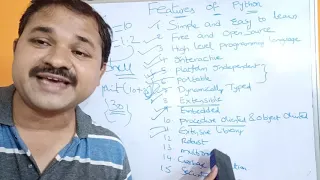 Features of Python
1 Simple and Easy to learn
2 Free and Open source
3 High level programming language
4 Interactive
5 Platform Independent
6 Portable
7 Dynamically Typed
8 Extensible
9 Embedded
10 Procedure oriented & object oriented
11 Extensive library
12 Robust
13
14
15
10
1.2
10+
30